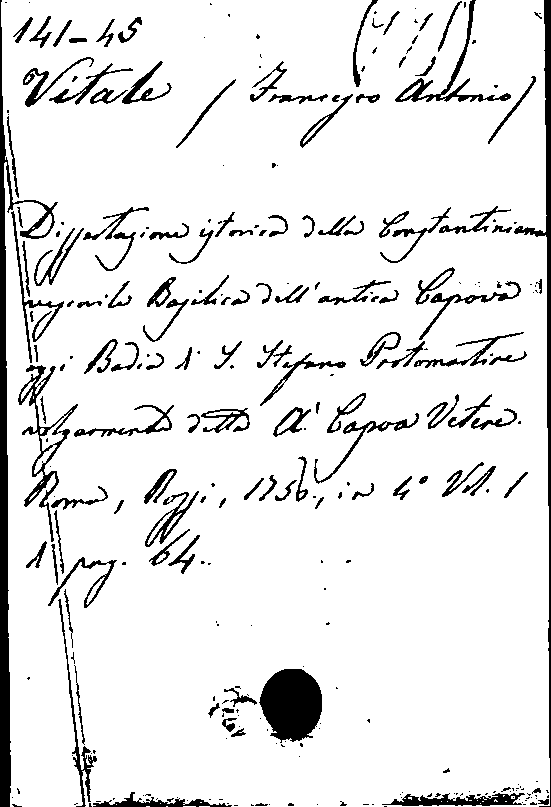 141-45 (771)
Vitale (Francesco Antonio)
Dissertazione istorica della Constantiniana
vescovile Basilica dell'antica Capova
oggi Badia di S. Stefano Protomartire
volgarmente detta di Capoa Vetere.
Roma, Rossi, 1756, in 4° Vol. 1
di pag. 64.